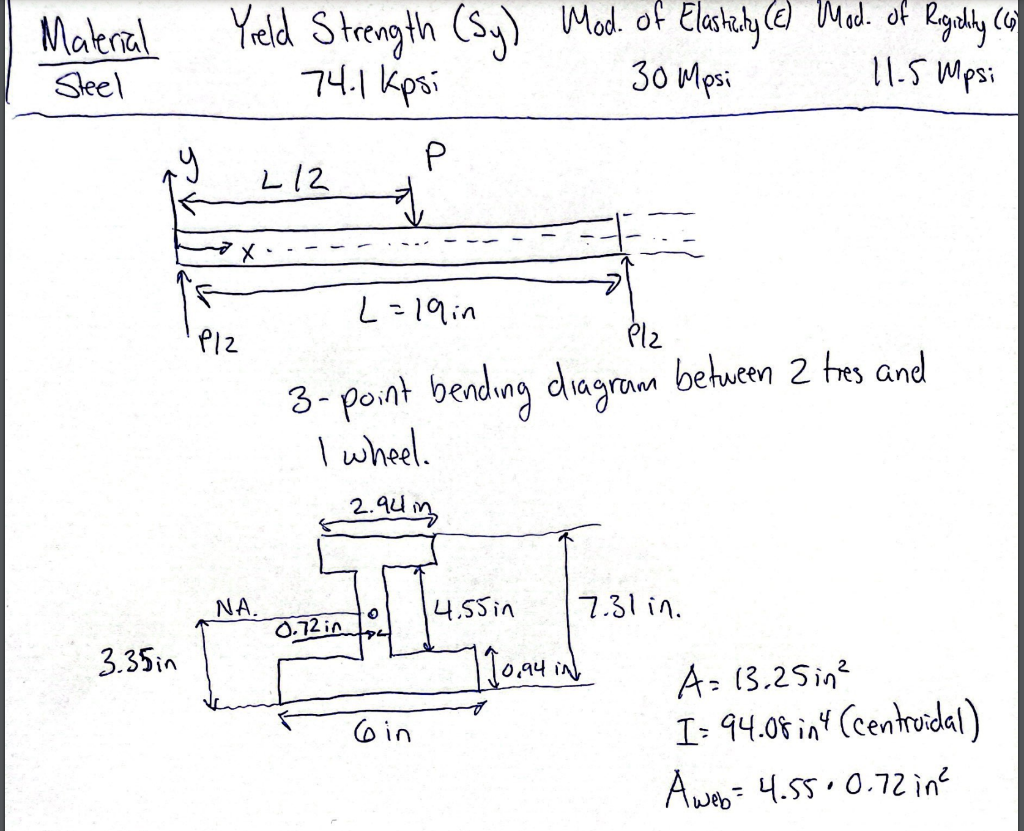 Material Yield Strength (Sy) Mod. of Elasticity (E) Mod. of Rigidity (G)
Steel 74.1 Kpsi 30 Mpsi 11.5 Mpsi
y
L/2
P
x
L = 19in
P/2
P/2
3-point bending diagram between 2 ties and
1 wheel.
2.94 in
N.A.
0.72 in
4.55in
7.31 in.
3.35in
0.94 in
6 in
A= 13.25in²
I= 94.08 in⁴ (centroidal)
Aweb= 4.55 • 0.72 in²